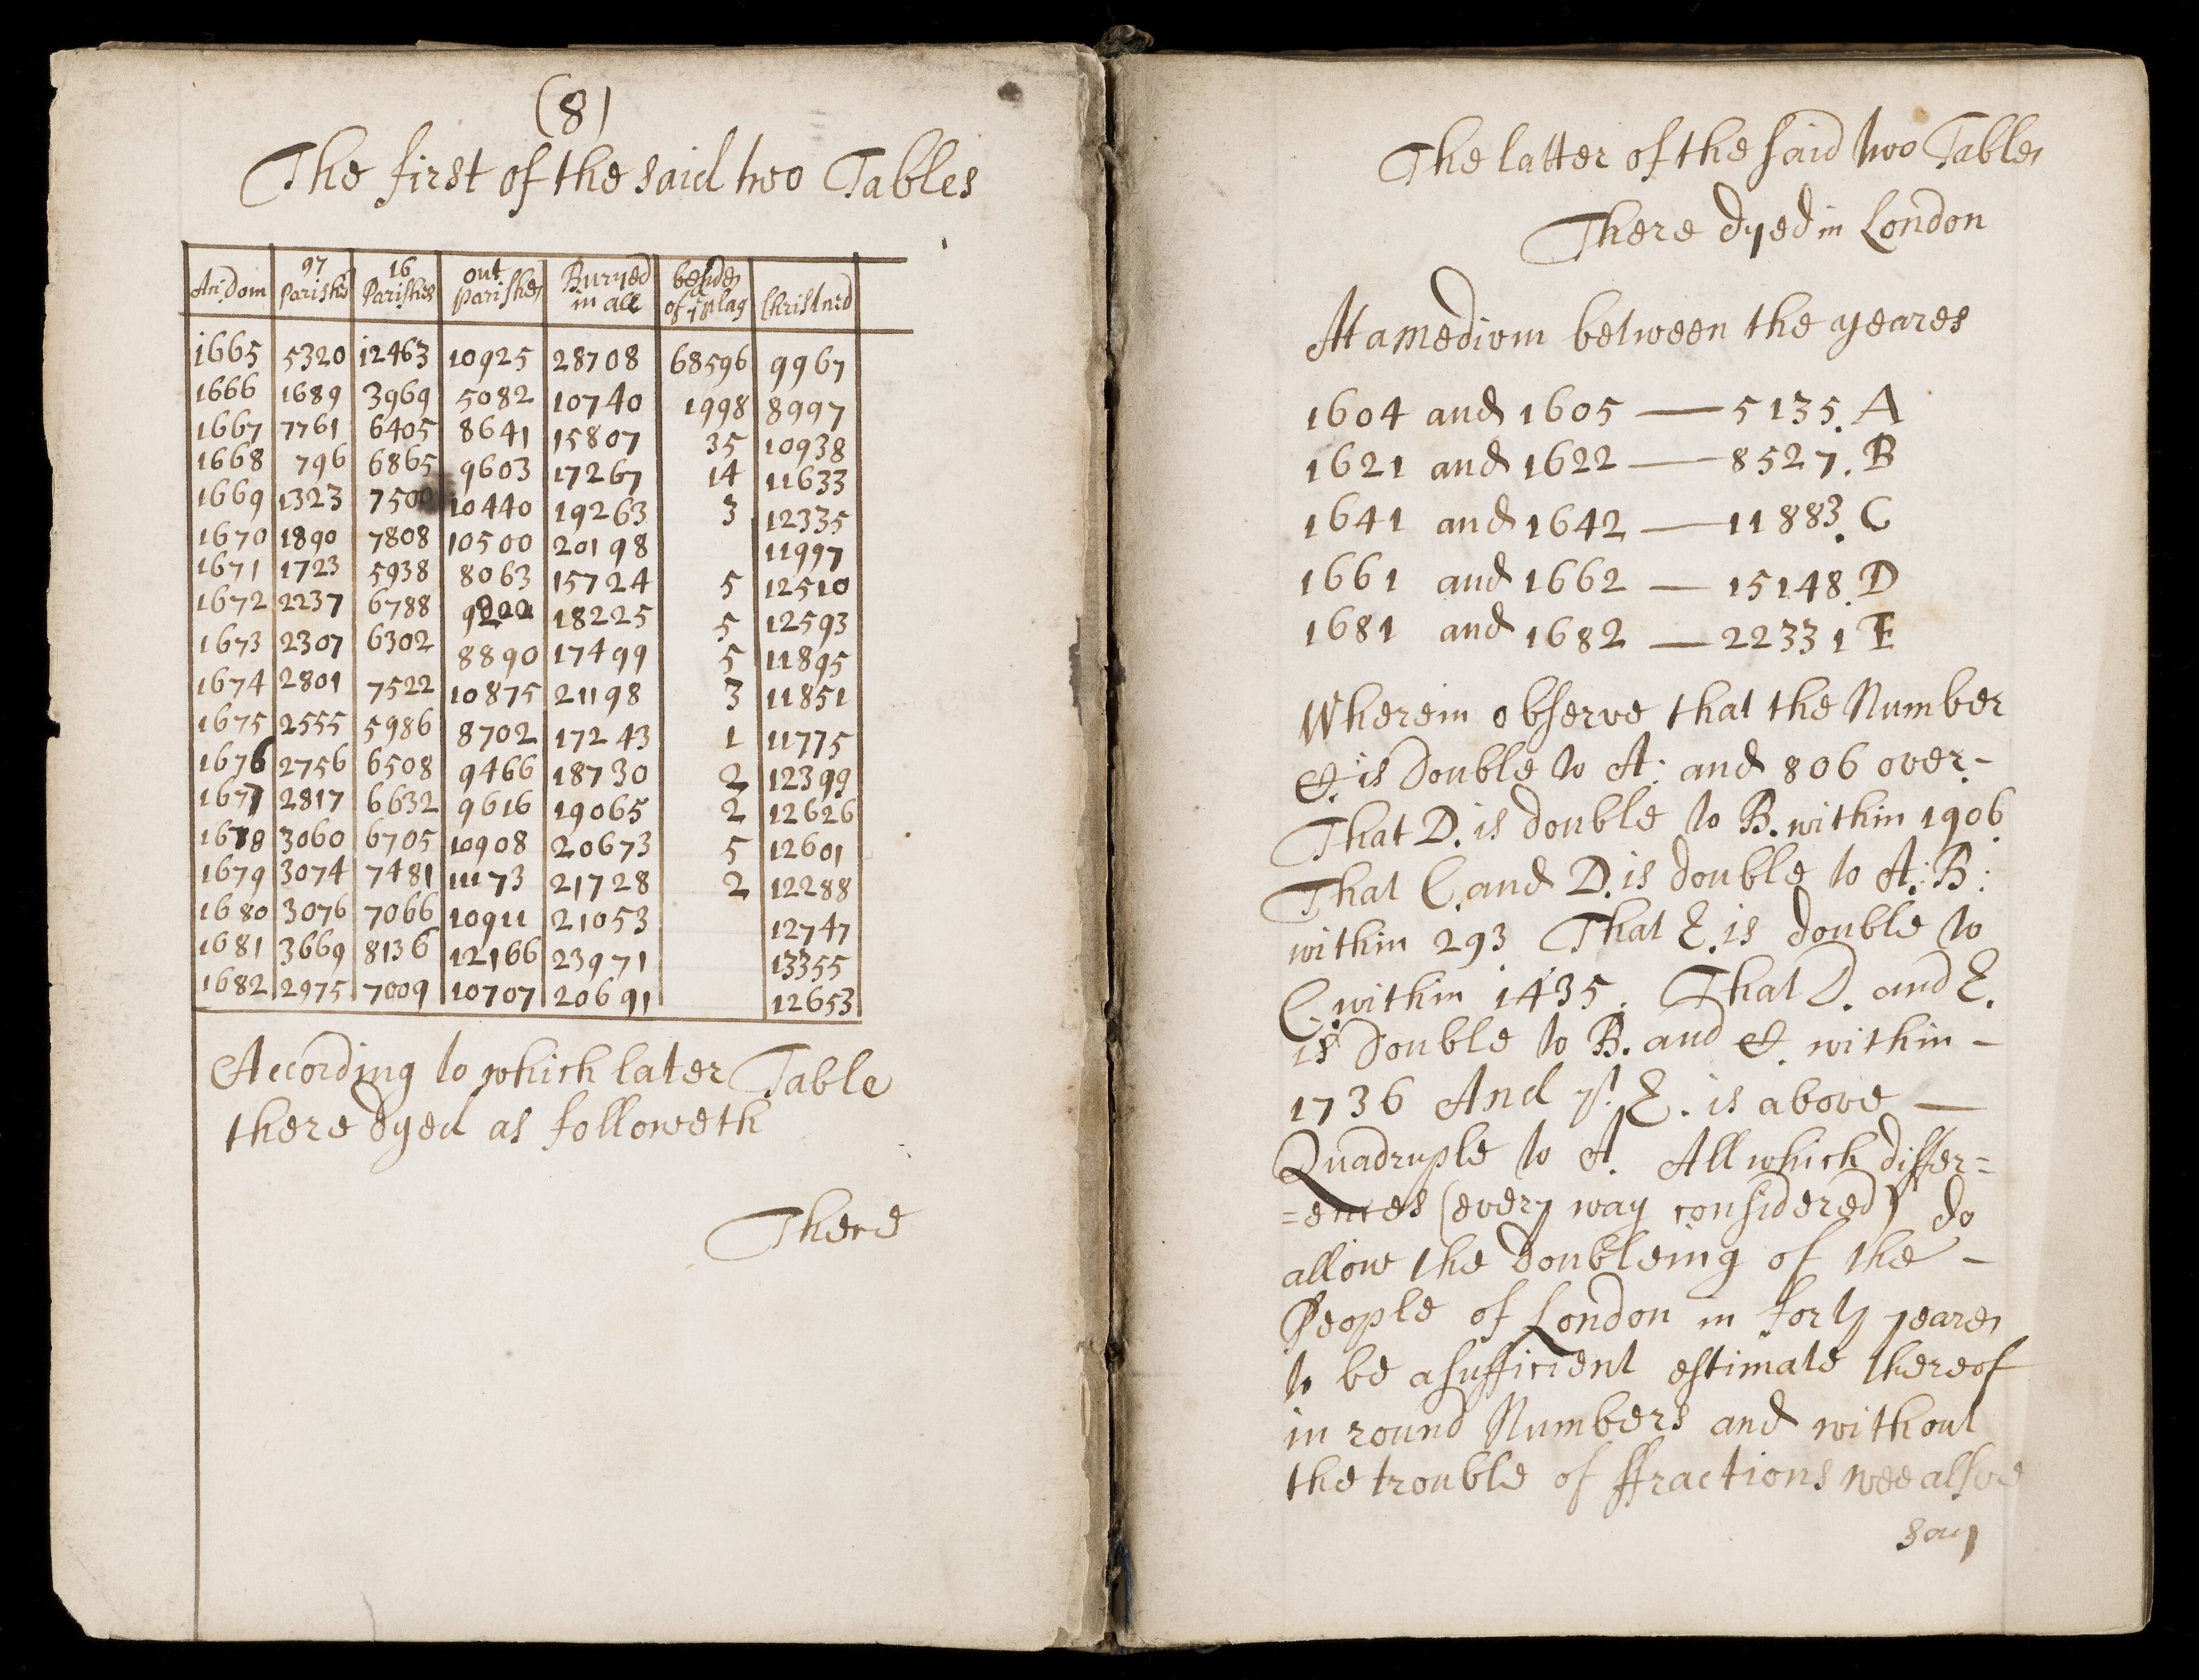 (8)
The first of the said two Tables
An: Dom 97 Parishes 16 Parishes out parishes Buryed in all besides of ye plag Christned
1665 5320 12463 10925 28708 68596 9967
1666 1689 3969 5082 10740 1998 8997
1667 7761 6405 8641 15807 35 10938
1668 796 6865 9603 17267 14 11633
1669 1323 7500 10440 19263 3 12335
1670 1890 7808 10500 20198 11997
1671 1723 5938 8063 15724 5 12510
1672 2237 6788 9200 18225 5 12593
1673 2307 6302 8890 17499 5 11895
1674 2801 7522 10875 21198 3 11851
1675 2555 5986 8702 17243 1 11775
1676 2756 6508 9466 18730 2 12399
1677 2817 6632 9616 19065 2 12626
1678 3060 6705 10908 20673 5 12601
1679 3074 7481 11173 21728 2 12288
1680 3076 7066 10911 21053 12747
1681 3669 8136 12166 23971 13355
1682 2975 7009 10707 20691 12653
According to which later Table
there dyed as followeth
There
The latter of the said two Tables
There dyed in London
At a medium between the yeares
1604 and 1605 — 5135. A
1621 and 1622 — 8527. B
1641 and 1642 — 11883. C
1661 and 1662 — 15148. D
1681 and 1682 — 22331 E
Wherein observe that the Number
C. is Double to A: and 806 over -
That D. is double to B. within 1906
That C. and D. is double to A: B:
within 293 That E. is double to
C. within 1435. That D. and E.
is Double to B. and C. within -
1736 And yt. E. is above —
Quadruple to A. All which differ=
=ences (every way considered) do
allow the doubleing of the -
People of London in forty yeares
to be a sufficient estimate thereof
in round Numbers and without
the trouble of ffractions wee allsoe
say